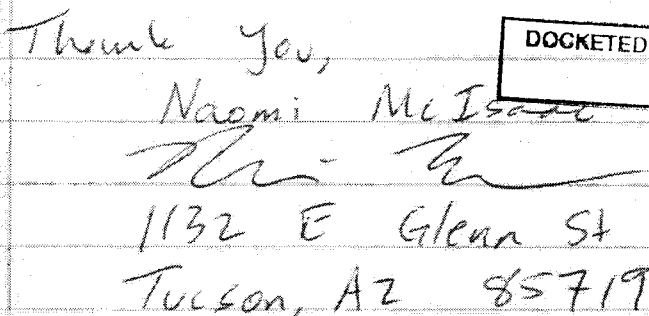 Thank You,
DOCKETED
Naomi McIsaac
1132 E Glenn St
Tucson, AZ 85719